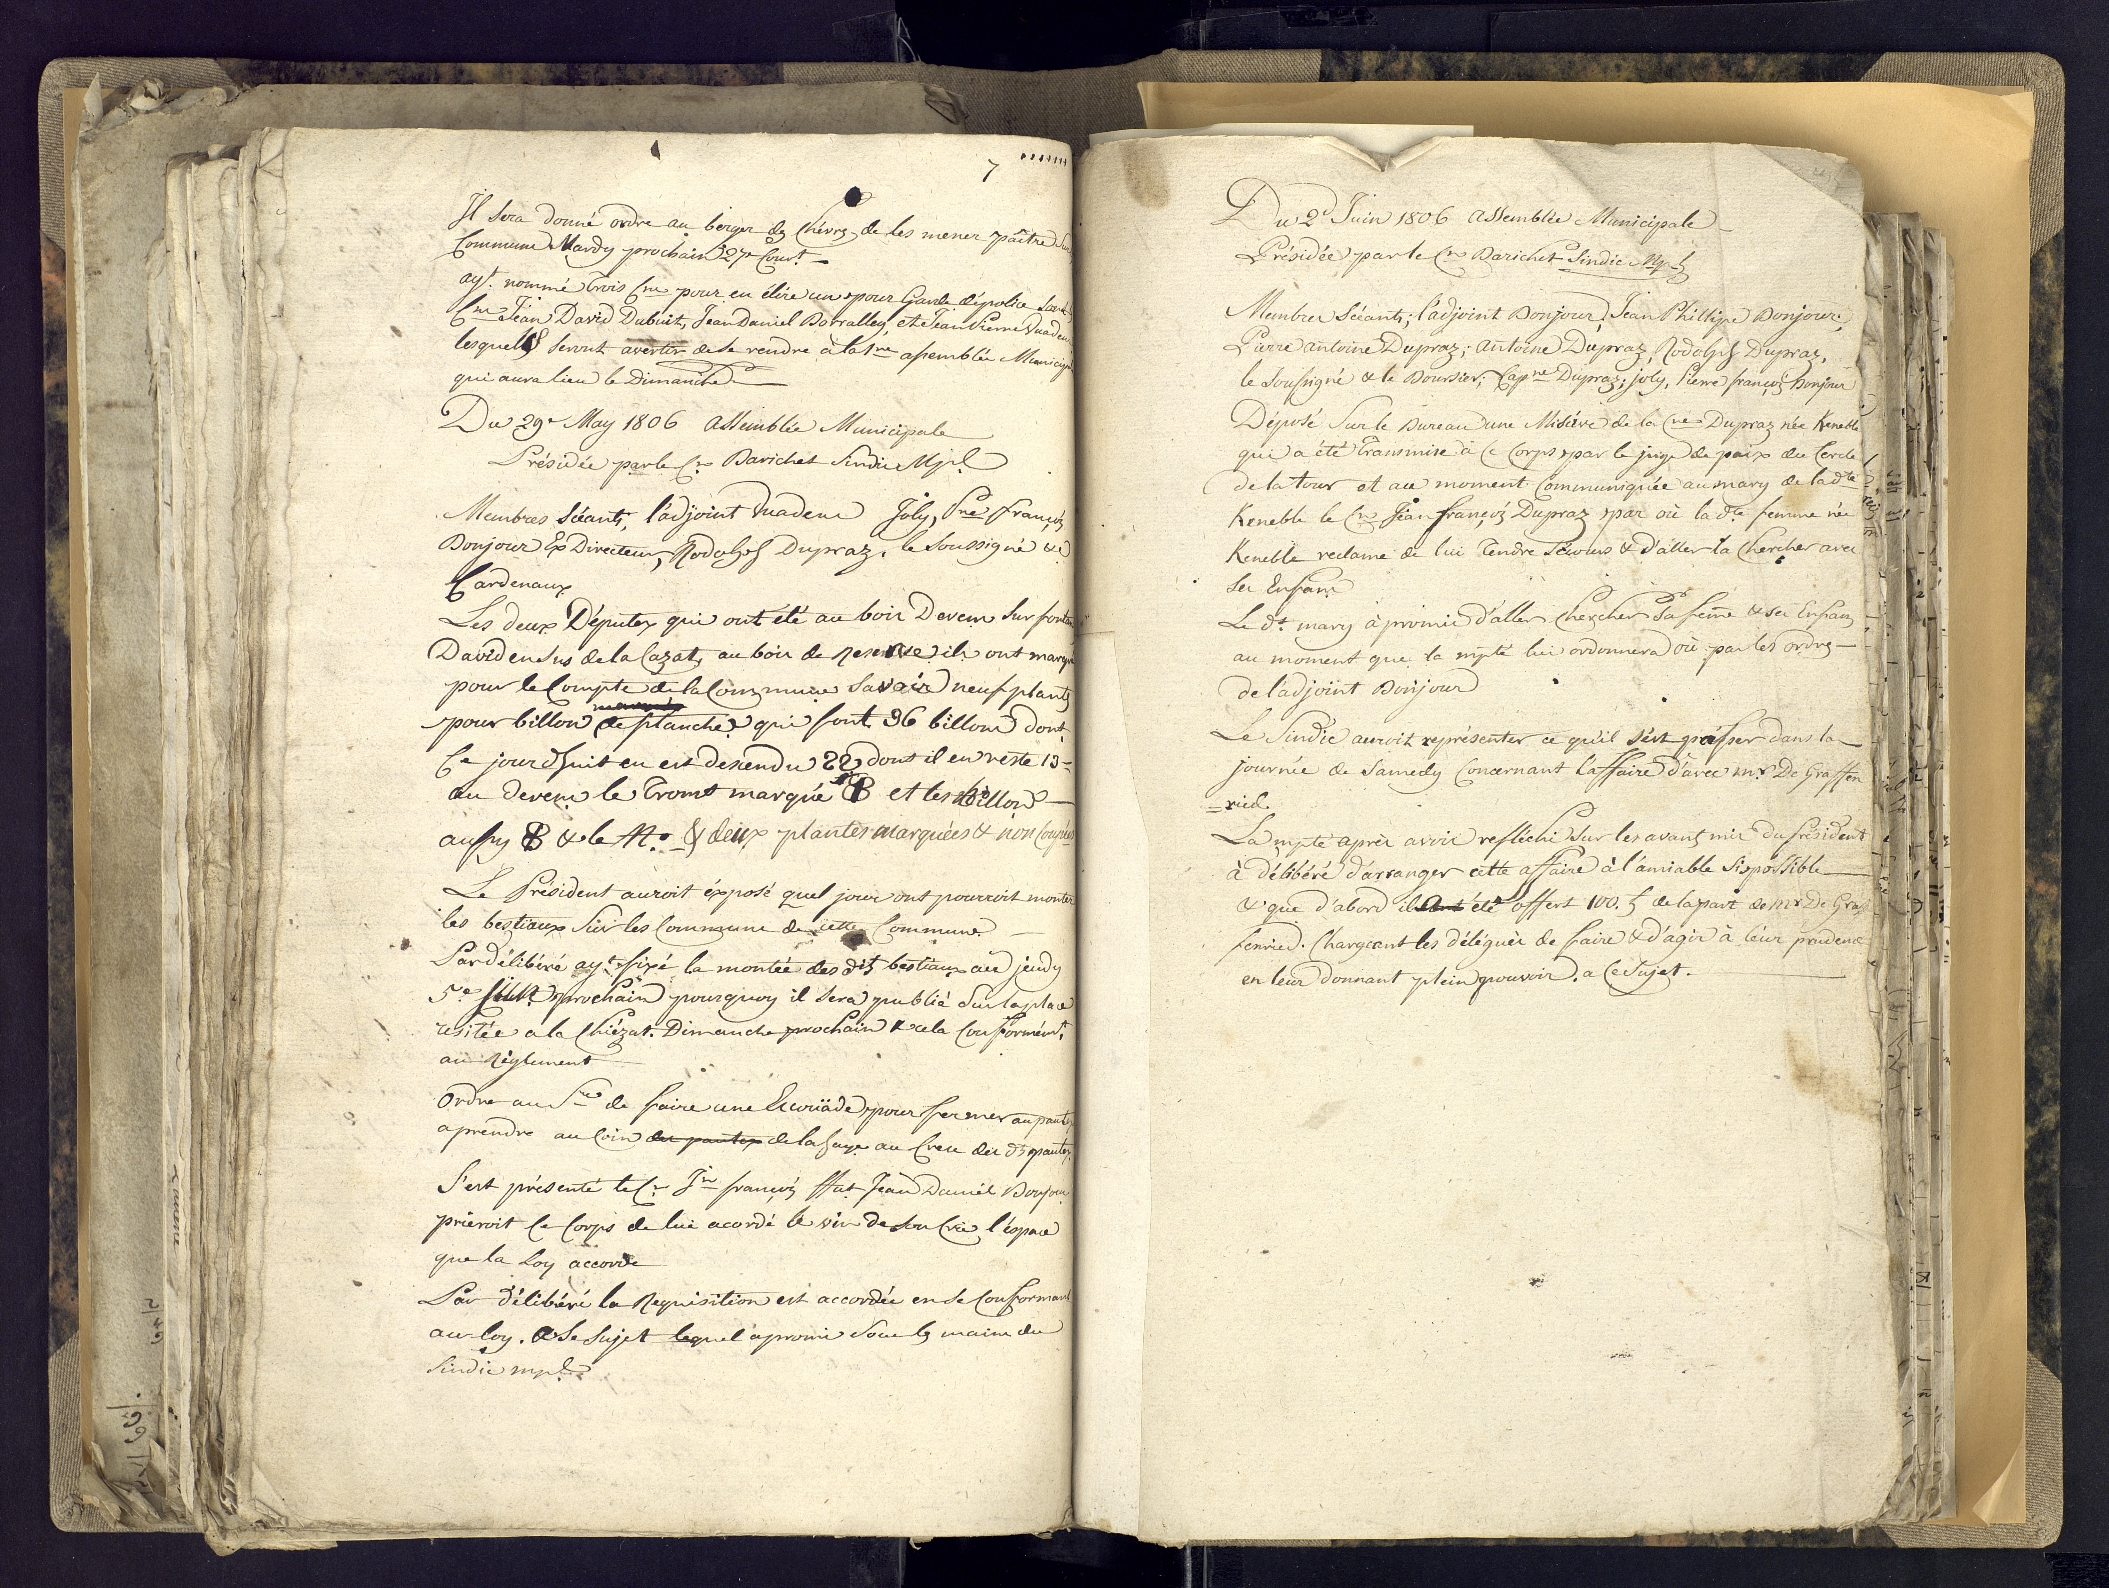 7
Il sera donné ordre au berger des Chèvres de les mener paître sur
Commune Mardy prochain 27e Court
ayt. nommé trois Cns pour en élire un pour Garde dépolice
Cns Jean David Dubuit, Jean Daniel Borralley, et Jean Pierre
lesquels seront avertir de se rendre à la 1re assemblée
qui aura lieu le Dimanche
Du 29e May 1806 assemblée Municipale
Présidée par le Cn Barichet Sindic Mpl
Membres Séants, l'adjoint Joly, Pre françois
Bonjour Ex Directeur, Rodolph Dupraz, le Soussigné &
Cardenaux
Les deux Députex qui ont été au bois Devens sur
David en sus de la Cazat, au bois de Reserve ils ont
pour le Compte de la Commune Savoir neuf plants
pour billon de planches qui font 36 billons dont
Ce jourd'huit en est descendu 22 dont il en reste 13
au devens le tronc marqué B et les billons
aussy B & le & deux plantes marquées & non Coupées
Le Président auroit éxposé quel jour ont pourroit monter
les bestiaux sur les Commune de cette Commune
Par délibéré ayt fixé la montée des dts bestiaux au jeudy
5e prochain pourquoy il sera publié sur la place
usitée a la Chiézat. Dimanche prochain & cela Conformémt.
au Règlement
Ordre au de faire une Ecouäde pour fermer au
aprendre au Coin des pautex de la au Creu des dts pautex
S'est présenté le Cn Jn françois ffat Jean Daniel
prieroit Ce Corps de lui acordé le vin de son Crû, l'éspace
que la Loy accorde
Par délibéré la Requisition est accordée en se Conformant
au loy. & Se Sujet lequel a promi sous les mains du
Sindic mpl
Du 2d Juin 1806 assemblée Municipale
Présidée par le Cn Barichet Sindic Mpl
Membres Séants; l'adjoint Bonjour, Jean Phillipe Bonjour;
Pierre antoine Dupraz; antoine Dupraz, Rodolph Dupraz,
le Soussigné & le Boursier; Capne Dupraz; joly, Pierre françois Bonjour
Déposé sur le Bureau une Miséive de la Cne Dupraz née Keneble
qui a été Transmise à Ce Corps par le juge de paix du Cercle
de la tour et au moment Communiquée au mary de la dte
Keneble le Cn Jean françois Dupraz par où la dte femme née
Keneble reclame de lui tendre Sécours & d'aller la Chercher avec
ses Enfans
Le dt mary à promis d'aller Chercher Sa feme & ses Enfans
au moment que la mpté lui ordonnera où par les ordres
de l'adjoint Bonjour
Le Sindic auroit réprésenter ce qu'il s'est passer dans la
journée de Samedy Concernant l'affaire d'avec mr De Graffen
=ried
La mpté après avoir refléchi sur les avants mis du Président
à délibéré d'arranger cette affaire à l'amiable si possible
& que d'abord il été offert 100. de la part de mr De Graf
fenried. Chargeant les déléguès de faire & d'agir à leur prudence
en leur donnant plein pouvoir. a Ce Sujet.